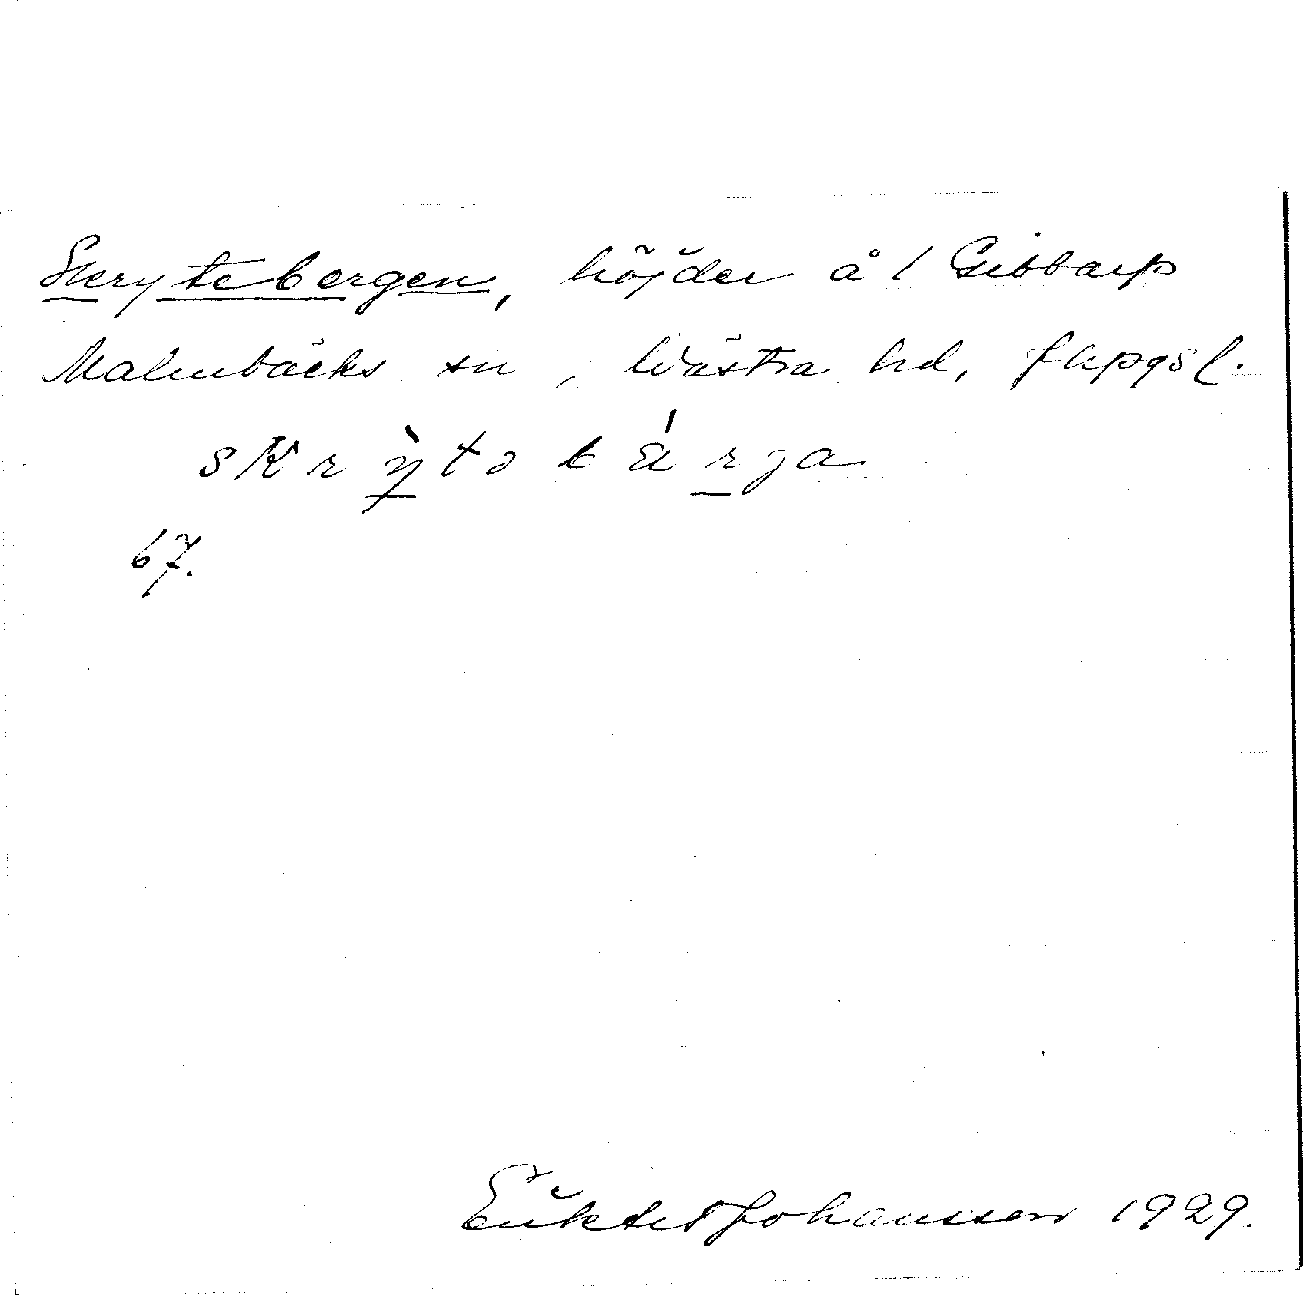 Skrytebergen, höjder å / Gibbarp
Malmbäcks sn, Västra hd, Jkpgs l.
skrỳtobä́rja
67.
Johansson 1929.